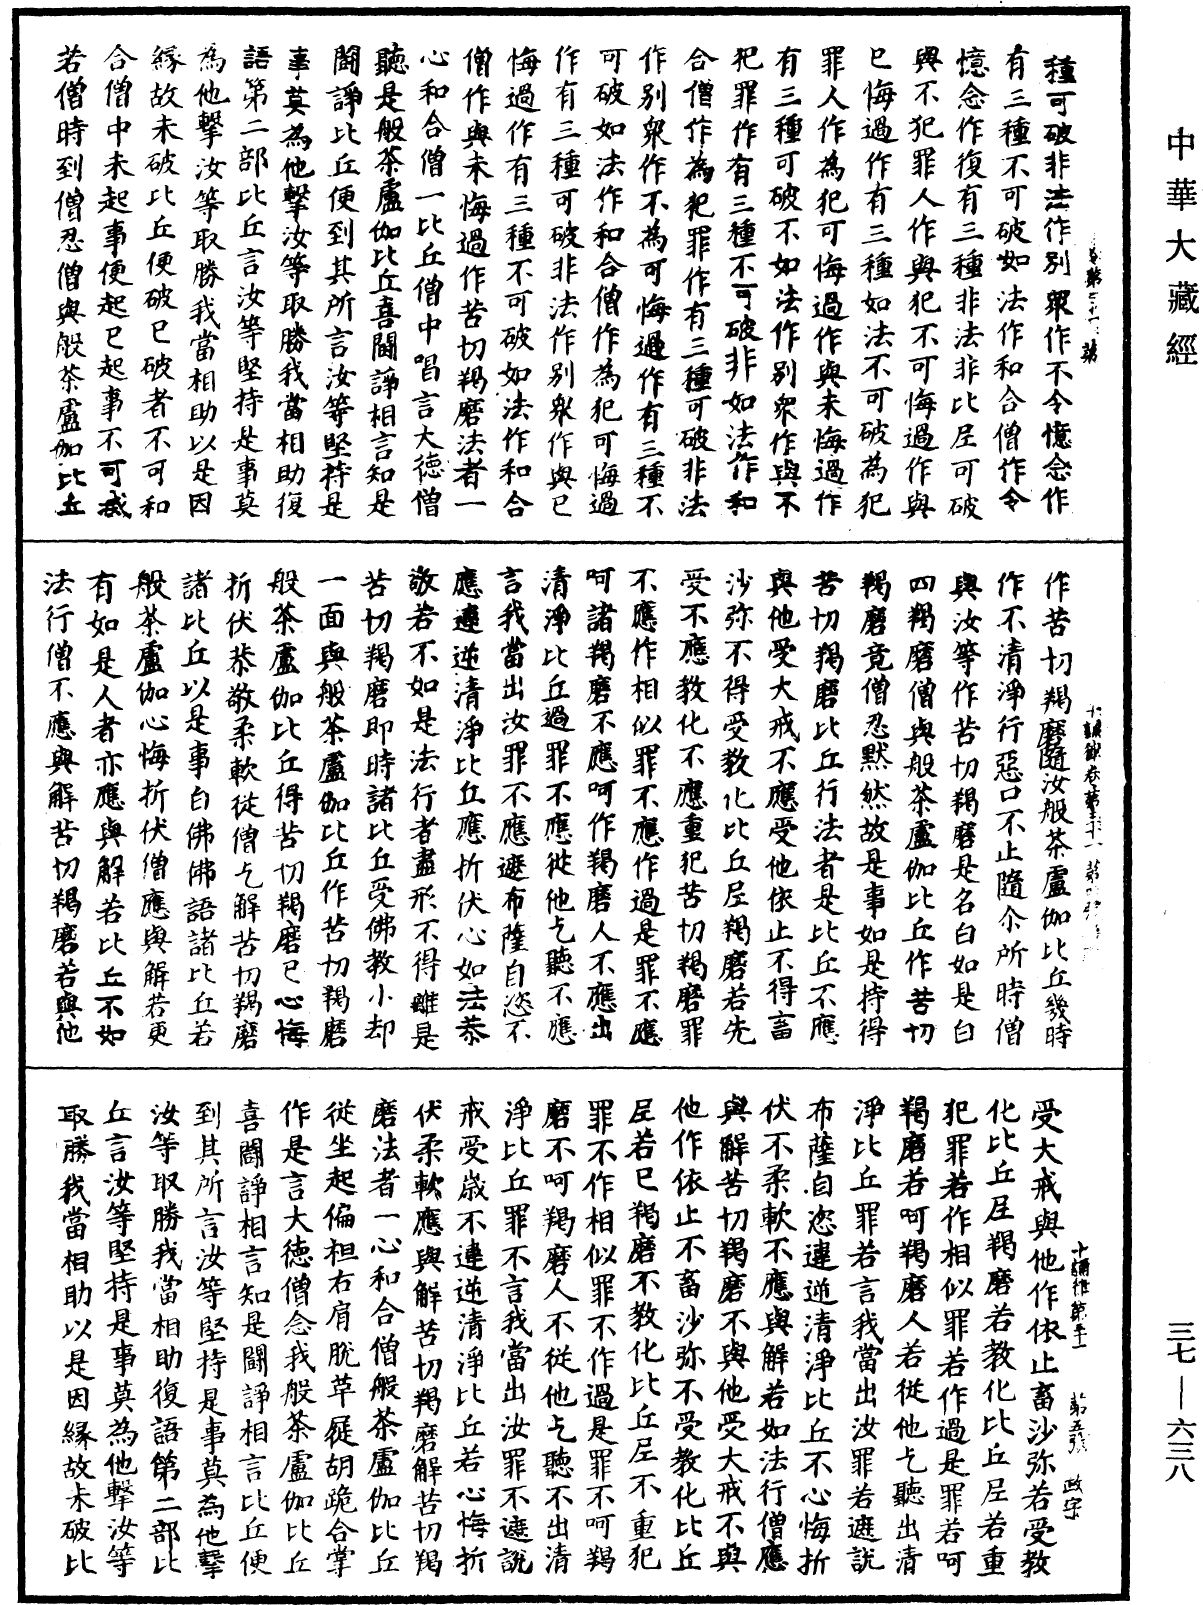 中華大藏經
種可破非法作別衆作不令憶念作
有三種不可破如法作和合僧作令
憶念作復有三種非法非比尼可破
與不犯罪人作與犯不可悔過作與
已悔過作有三種如法不可破為犯
罪人作為犯可悔過作與未悔過作
有三種可破不如法作別衆作與不
犯罪作有三種不可破非如法作和
合僧作為犯罪作有三種可破非法
作別衆作不為可悔過作有三種不
可破如法作和合僧作為犯可悔過
作有三種可破非法作別衆作與已
悔過作有三種不可破如法作和合
僧作與未悔過作苦切羯磨法者一
心和合僧一比丘僧中唱言大德僧
聽是般茶盧伽比丘喜鬪諍相言知是
鬪諍比丘便到其所言汝等堅持是
事莫為他擊汝等取勝我當相助復
語第二部比丘言汝等堅持是事莫
為他擊汝等取勝我當相助以是因
緣故未破比丘便破已破者不可和
合僧中未起事便起已起事不可滅
若僧時到僧忍僧與般茶盧伽比丘
作苦切羯磨隨汝般茶盧伽比丘幾時
作不清淨行惡口不止隨尒所時僧
與汝等作苦切羯磨是名白如是白
四羯磨僧與般茶盧伽比丘作苦切
羯磨竟僧忍默然故是事如是持得
苦切羯磨比丘行法者是比丘不應
與他受大戒不應受他依止不得畜
沙弥不得受教化比丘尼羯磨若先
受不應教化不應重犯苦切羯磨罪
不應作相似罪不應作過是罪不應
呵諸羯磨不應呵作羯磨人不應出
清淨比丘過罪不應從他乞聽不應
言我當出汝罪不應遮布薩自恣不
應違逆清淨比丘應折伏心如法恭
敬若不如是法行者盡形不得離是
苦切羯磨即時諸比丘受佛教小却
一面與般茶盧伽比丘作苦切羯磨
般茶盧伽比丘得苦切羯磨已心悔
折伏恭敬柔軟從僧乞解苦切羯磨
諸比丘以是事白佛佛語諸比丘若
般茶盧伽心悔折伏僧應與解若更
有如是人者亦應與解若比丘不如
法行僧不應與解苦切羯磨若與他
受大戒與他作依止畜沙弥若受教
化比丘尼羯磨若教化比丘尼若重
犯罪若作相似罪若作過是罪若呵
羯磨若呵羯磨人若從他乞聽出清
淨比丘罪若言我當出汝罪若遮說
布薩自恣違逆清淨比丘不心悔折
伏不柔軟不應與解若如法行僧應
與解苦切羯磨不與他受大戒不與
他作依止不畜沙弥不受教化比丘
尼若已羯磨不教化比丘尼不重犯
罪不作相似罪不作過是罪不呵羯
磨不呵羯磨人不從他乞聽不出清
淨比丘罪不言我當出汝罪不遮說
戒受歲不違逆清淨比丘若心悔折
伏柔軟應與解苦切羯磨解苦切羯
磨法者一心和合僧般茶盧伽比丘
從坐起偏袒右肩脫草屣胡跪合掌
作是言大德僧念我般茶盧伽比丘
喜鬪諍相言知是鬪諍相言比丘便
到其所言汝等堅持是事莫為他擊
汝等取勝我當相助復語第二部比
丘言汝等堅持是事莫為他擊汝等
取勝我當相助以是因緣故未破比
三七—六三八